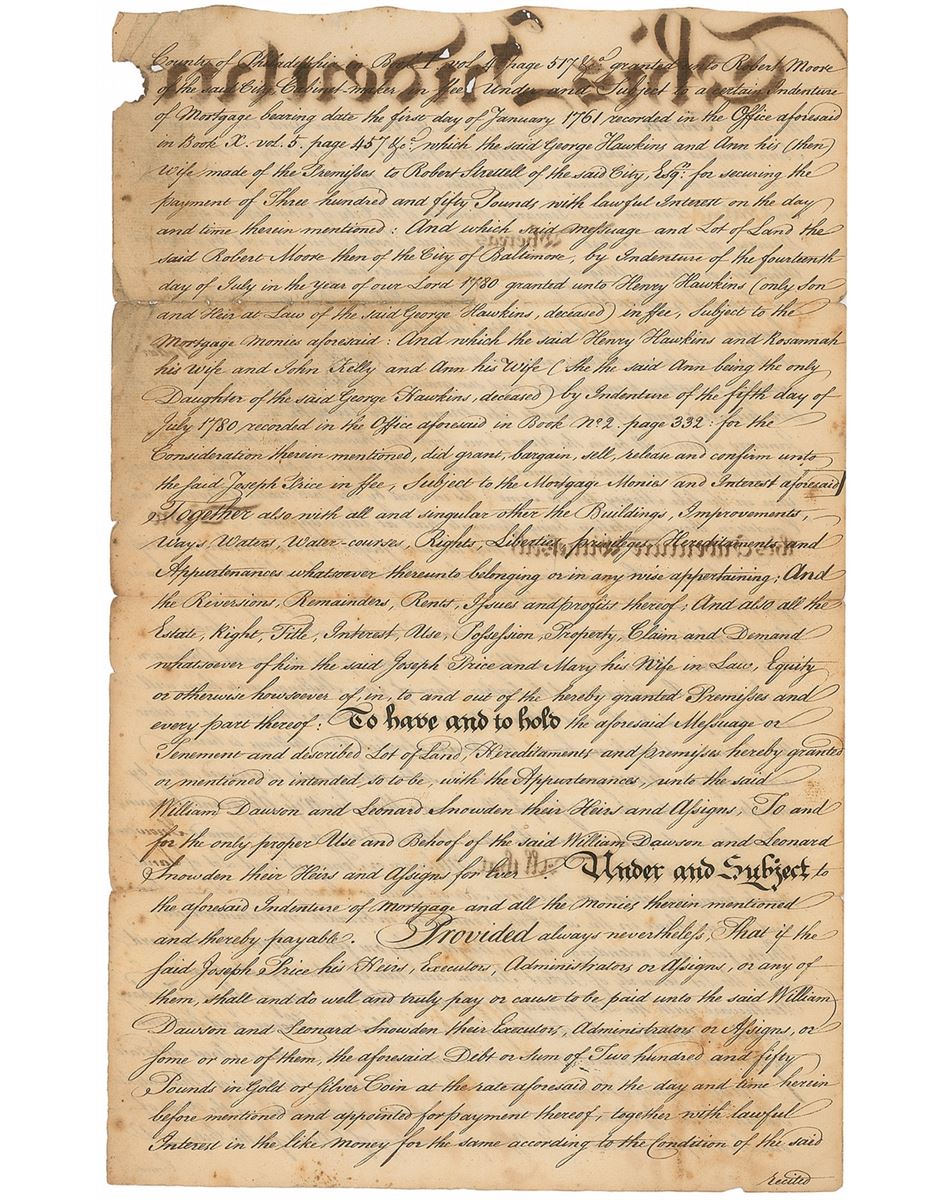 County of Philadelphia in Book I vol. 4 page 517 &c.ª granted unto Robert Moore
of the said City Cabinet-maker in ffee, Under and Subject to a certain Indenture
of Mortgage bearing date the first day of January 1761 recorded in the Office aforesaid
in Book X. vol. 5. page 457 &c.ª which the said George Hawkins and Ann his (then)
Wife made of the Premisses to Robert Strettell of the said City, Esqr. for securing the
payment of Three hundred and fifty Pounds with lawful Interest on the day
and time therein mentioned : And which said Messuage and Lot of Land the
said Robert Moore then of the City of Baltimore, by Indenture of the fourteenth
day of July in the Year of our Lord 1780 granted unto Henry Hawkins (only Son
and Heir at Law of the said George Hawkins, deceased) in ffee, Subject to the
Mortgage Monies aforesaid : And which the said Henry Hawkins and Rosannah
his Wife and John Kelly and Ann his Wife (she the said Ann being the only
Daughter of the said George Hawkins, deceased) by Indenture of the fifth day of
July 1780 recorded in the Office aforesaid in Book No. 2. page 332 : for the
Consideration therein mentioned, did grant, bargain, sell, release and confirm unto
the said Joseph Price in ffee, Subject to the Mortgage Monies and Interest aforesaid
Together also with all and singular other the Buildings, Improvements,
Ways, Waters, Water-courses, Rights, Liberties, privileges, Hereditaments and
Appurtenances whatsoever thereunto belonging or in any wise appertaining ; And
the Reversions, Remainders, Rents, Issues and profits thereof ; And also all the
Estate, Right, Title, Interest, Use, Possession, Property, Claim and Demand
whatsoever of him the said Joseph Price and Mary his Wife in Law, Equity
or otherwise howsoever of, in, to and out of the hereby granted Premisses and
every part thereof : To have and to hold the aforesaid Messuage or
Tenement and described Lot of Land, Hereditaments and premisses hereby granted
or mentioned or intended so to be, with the Appurtenances, unto the said
William Dawson and Leonard Snowden their Heirs and Assigns, To and
for the only proper Use and Behoof of the said William Dawson and Leonard
Snowden their Heirs and Assigns for Ever. Under and Subject to
the aforesaid Indenture of Mortgage and all the Monies therein mentioned
and thereby payable. Provided always nevertheless, That if the
said Joseph Price his Heirs, Executors, Administrators or Assigns, or any of
them, shall and do well and truly pay or cause to be paid unto the said William
Dawson and Leonard Snowden their Executors, Administrators or Assigns, or
some or one of them, the aforesaid Debt or Sum of Two hundred and fifty
Pounds in Gold or Silver Coin at the rate aforesaid on the day and time herein
before mentioned and appointed for payment thereof, together with lawful
Interest in the like Money for the same according to the Condition of the said
recited